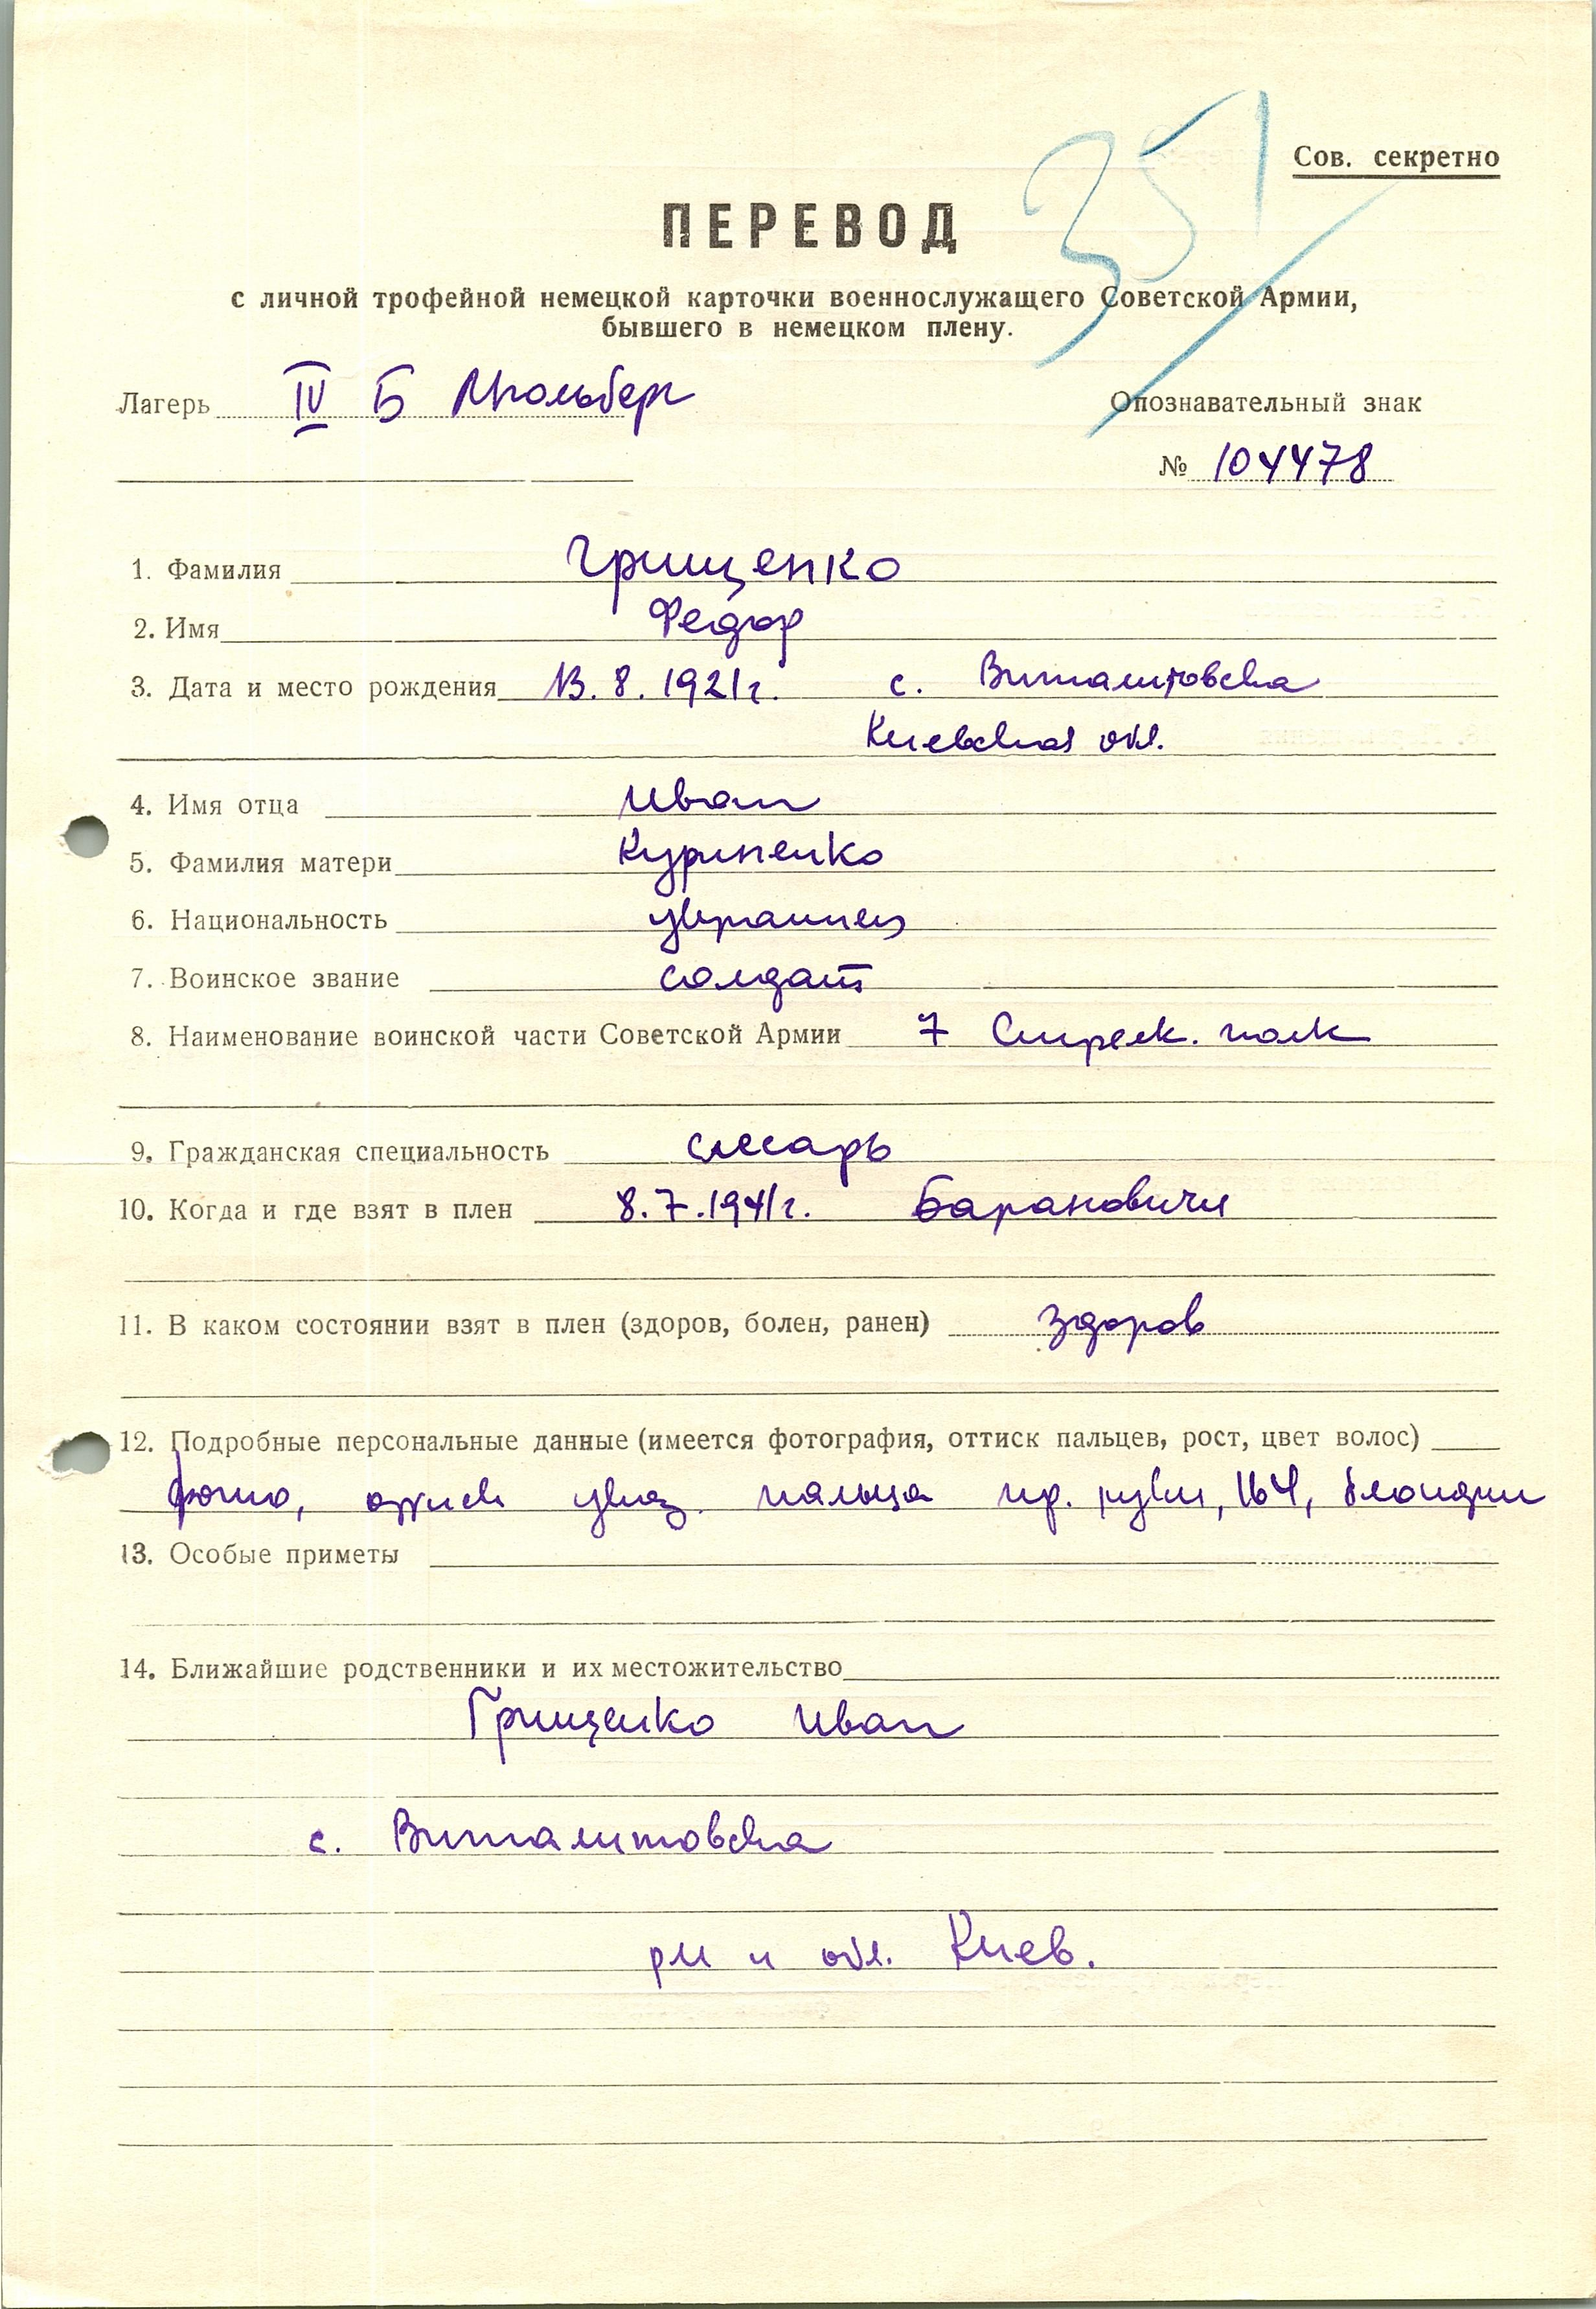 351
Сов. секретно
ПЕРЕВОД
с личной трофейной немецкой карточки военнослужащего Советской Армии,
бывшего в немецком плену.
Лагерь IV Б Мюльберг
Опознавательный знак
№ 104478
1. Фамилия Грищенко
2. Имя Федор
3. Дата и место рождения 13. 8. 1921г. с. Виталитовска
Киевская обл.
4. Имя отца Иван
5. Фамилия матери Куриленко
6. Национальность украинец
7. Воинское звание солдат
8. Наименование воинской части Советской Армии 7 Стрелк. полк
9. Гражданская специальность слесарь
10. Когда и где взят в плен 8.7.1941г. Барановичи
11. В каком состоянии взят в плен (здоров, болен, ранен) здоров
12. Подробные персональные данные (имеется фотография, оттиск пальцев, рост, цвет волос)
фото, оттиск указ. пальца пр. руки, 164, блондин
13. Особые приметы
14. Ближайшие родственники и их местожительство
Грищенко Иван
с. Виталитовска
рн и обл. Киев.